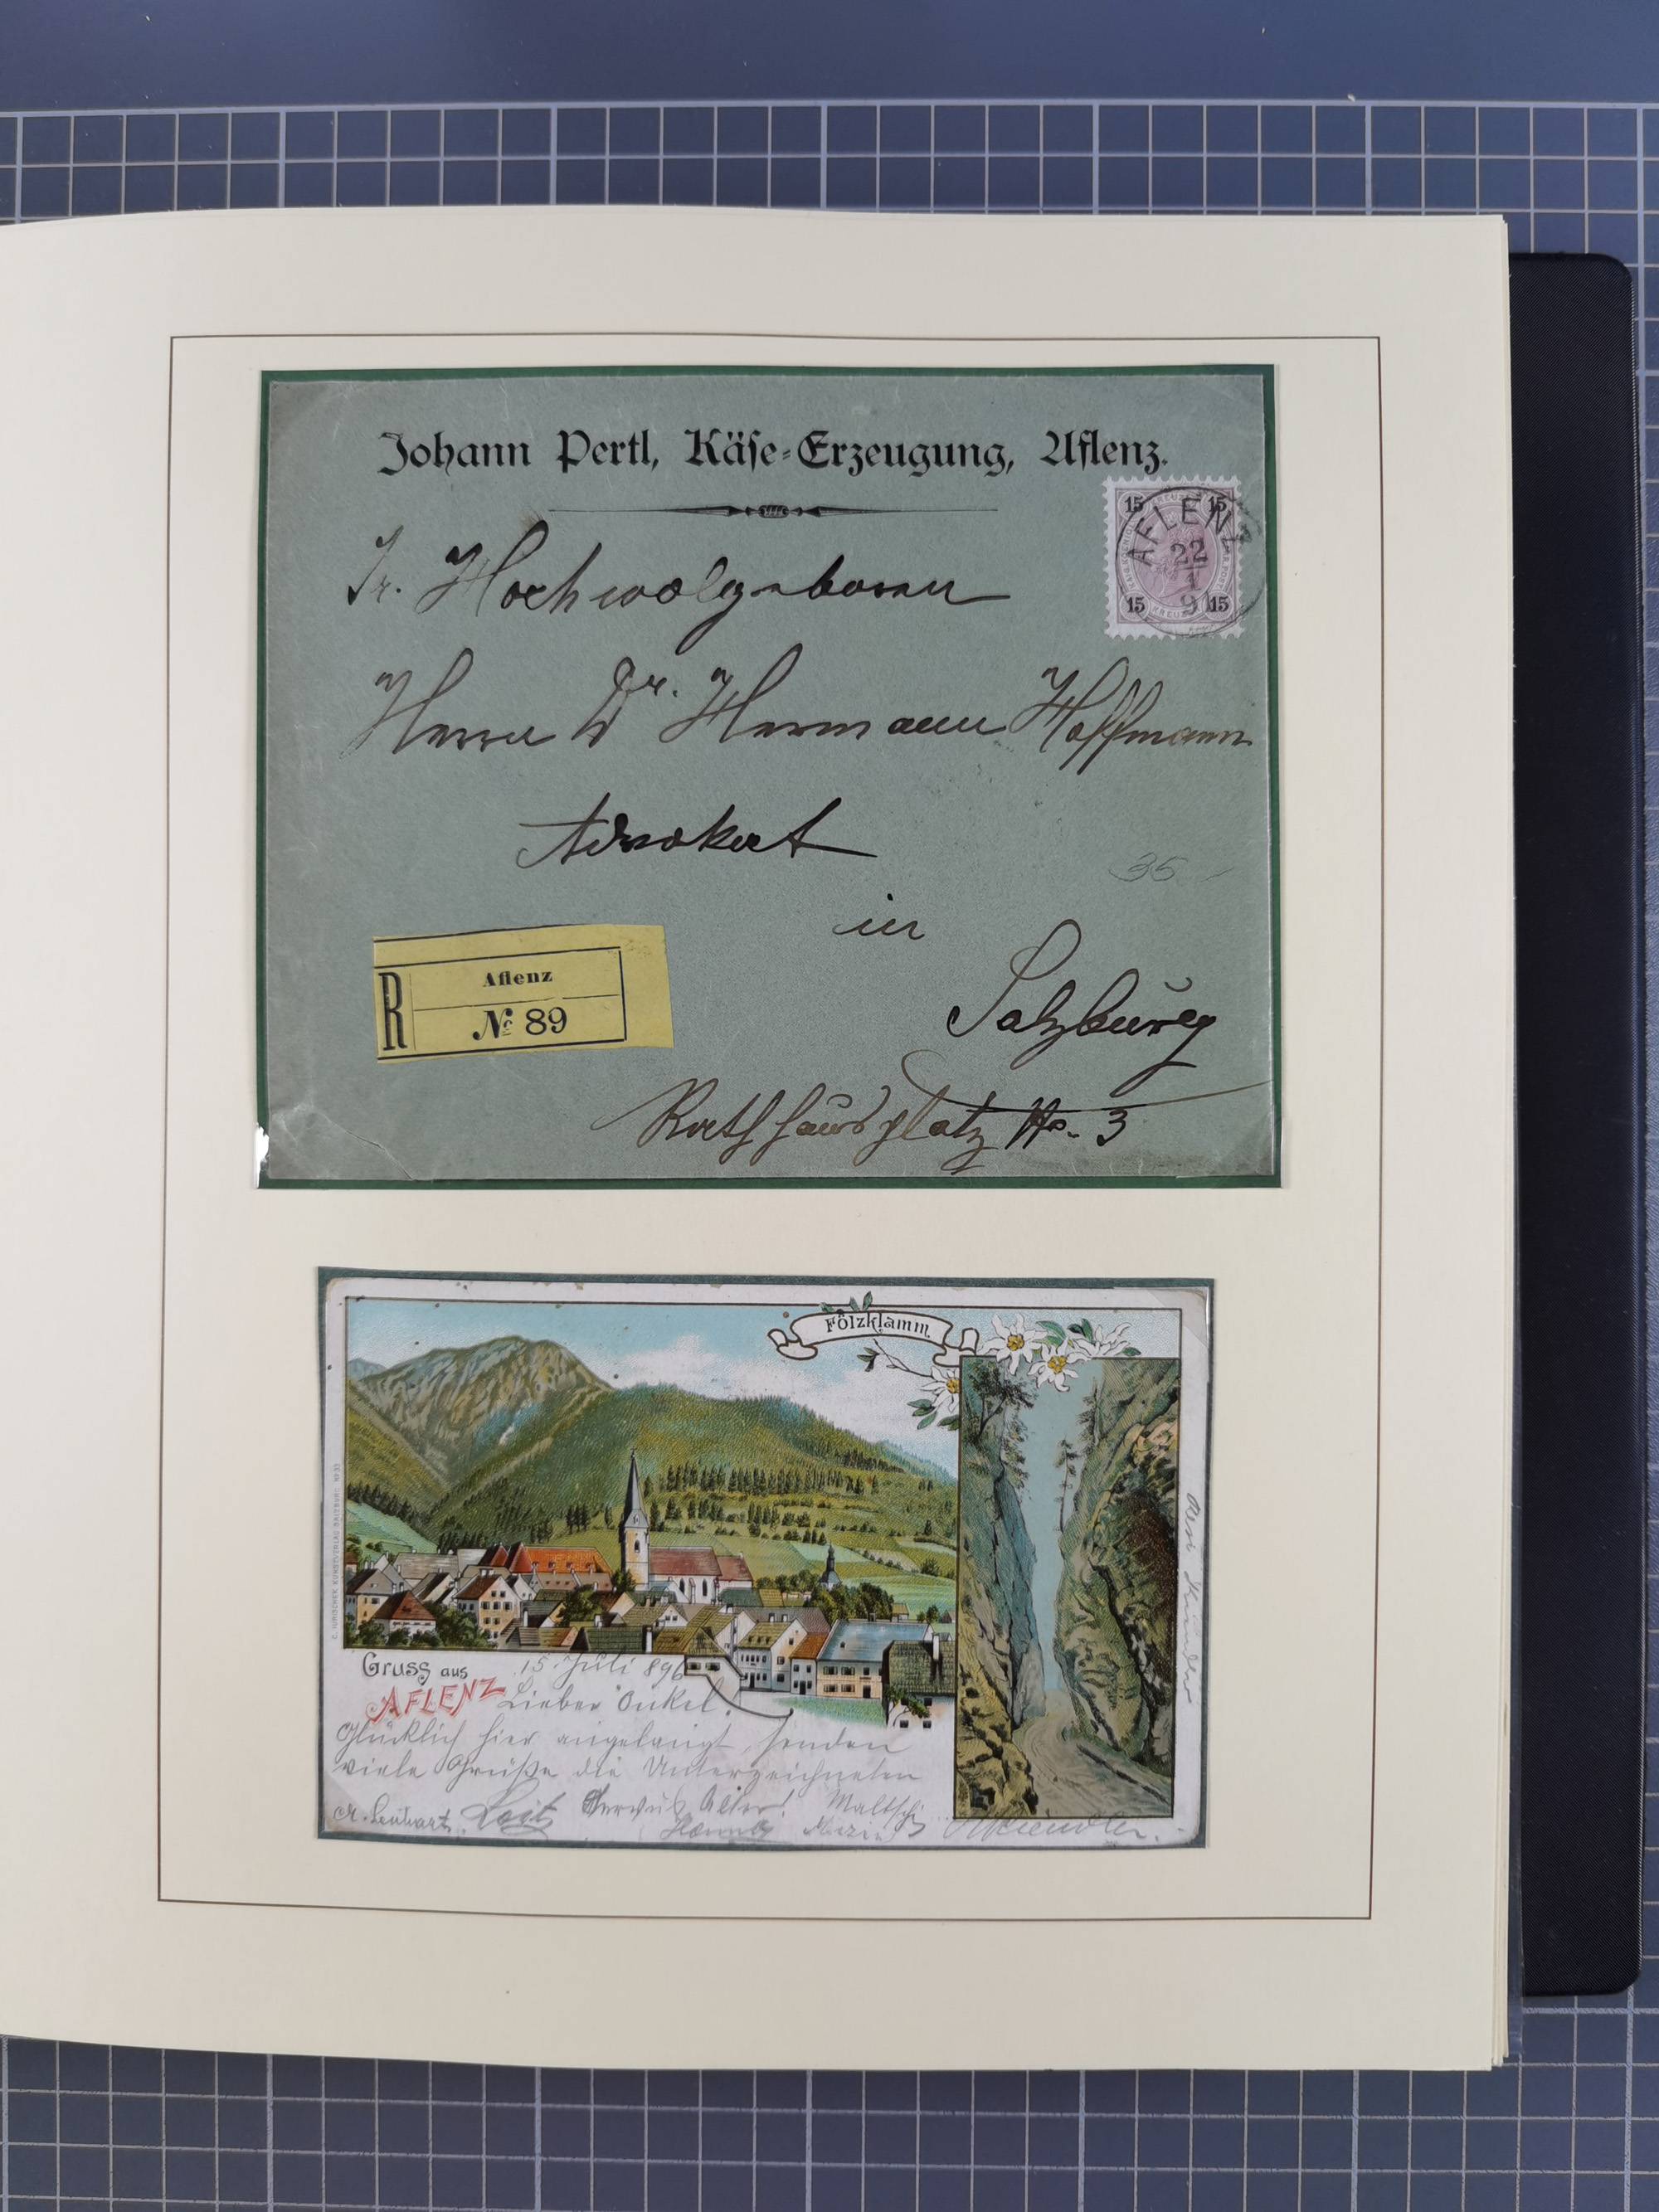 Johann Pertl, Käse-Erzeugung, Aflenz.
15 KREUZER 15
AFLENZ
22
1
9
15 KREUZER 15
Sr. Hochwolgeboren
Herrn Dr. Hermann Hoffmann
Advokat
35
in
Salzburg
Rathhausplatz No. 3
R
Aflenz
No 89
Fölzklamm.
Gruss aus
AFLENZ
15. Juli 896
Lieber Onkel!
Glücklich hier angelangt, senden
viele Grüße die Unterzeichneten
Servus Alter!